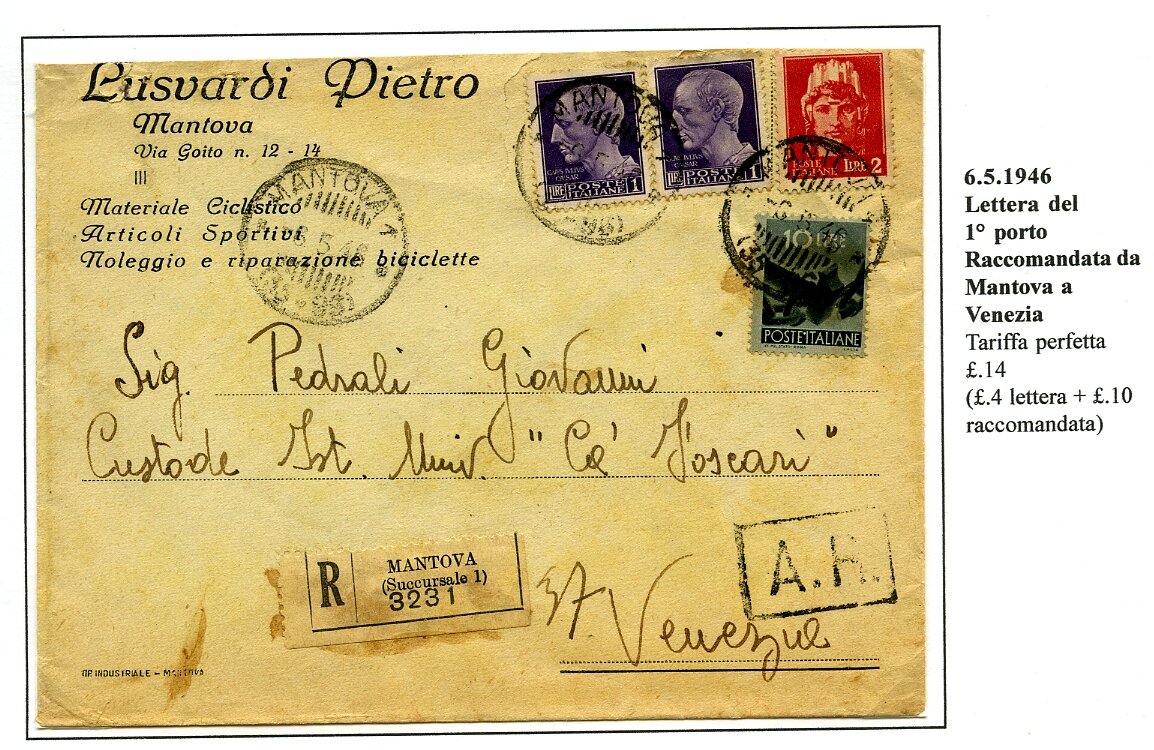 Lusvardi Pietro
Mantova
Via Goito n. 12 - 14
Materiale Ciclistico
Articoli Sportivi
Noleggio e riparazione biciclette
MANTOVA 1
6.5.46
MANTOVA
CAIVS IVLIVS
CAESAR
LIRE POSTE ITALIANE 1
CAIVS IVLIVS
CAESAR
LIRE POSTE ITALIANE 1
POSTE ITALIANE LIRE 2
MANTOVA
10 LIRE
POSTE ITALIANE
Sig. Pedrali Giovanni
Custode Ist. Univ. "Ca' Foscari"
R
MANTOVA
(Succursale 1)
3231
A.R.
Venezia
TIP. INDUSTRIALE - MANTOVA
6.5.1946
Lettera del
1° porto
Raccomandata da
Mantova a
Venezia
Tariffa perfetta
£.14
(£.4 lettera + £.10
raccomandata)